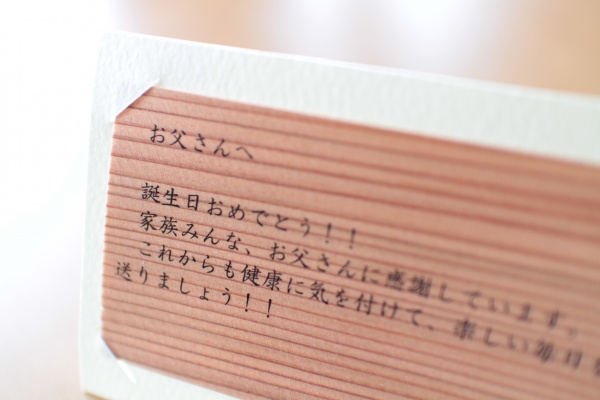 お父さんへ
誕生日おめでとう！！
家族みんな、お父さんに感謝しています。
これからも健康に気を付けて、楽しい毎日
送りましょう！！